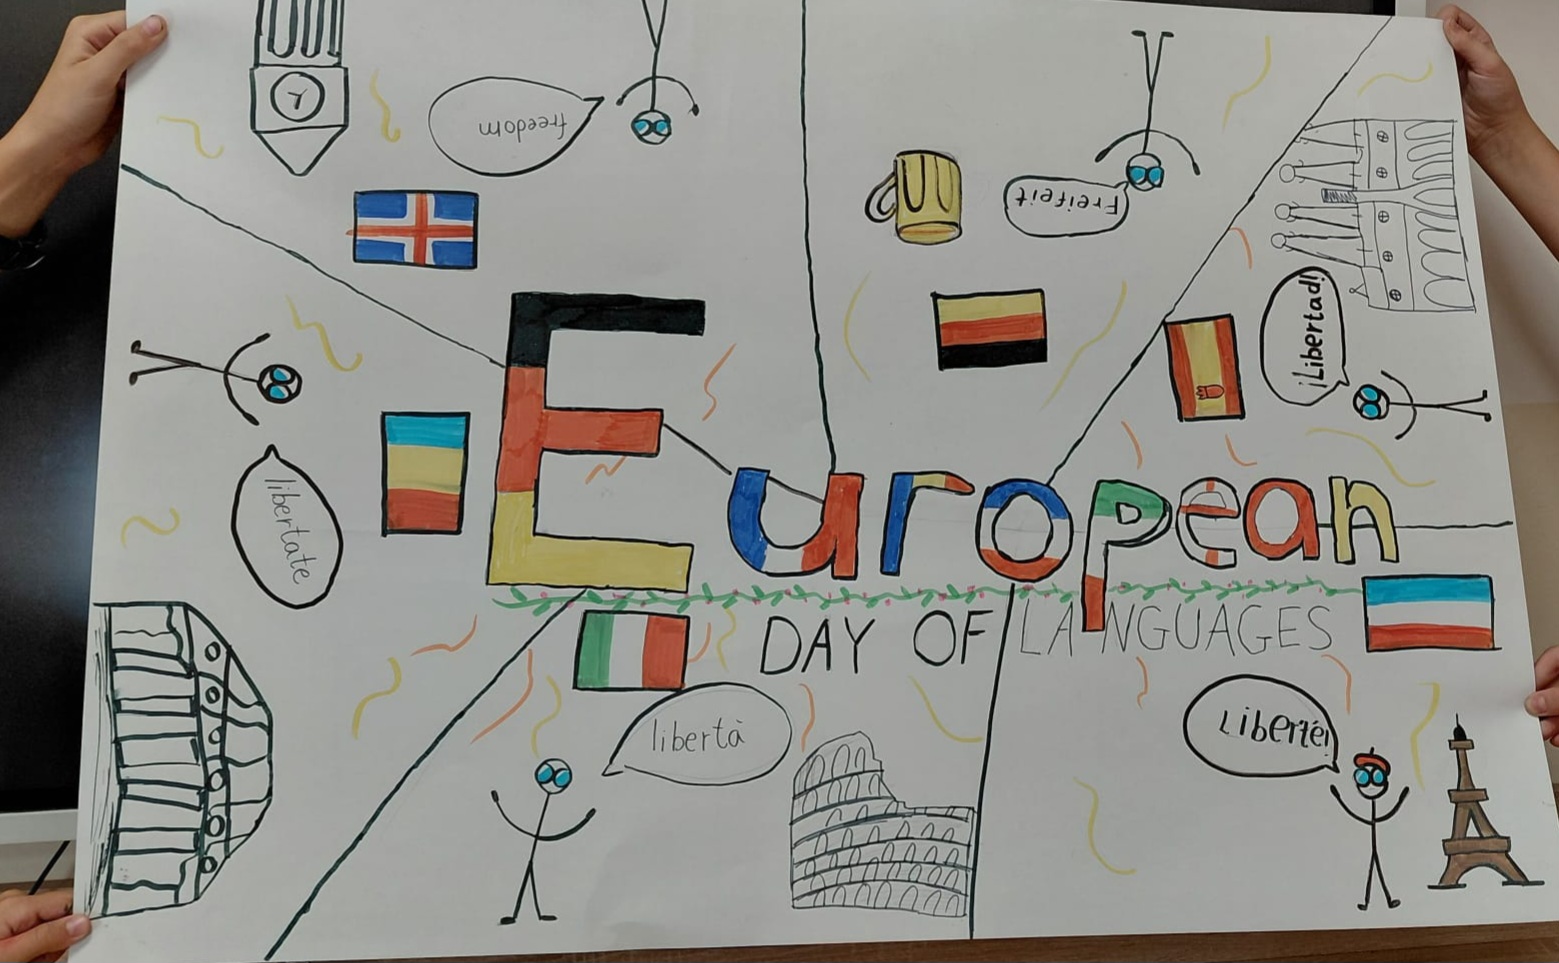 freedom
Freifeit
¡Libertad!
libertate
European
DAY OF LANGUAGES
libertà
Liberté!